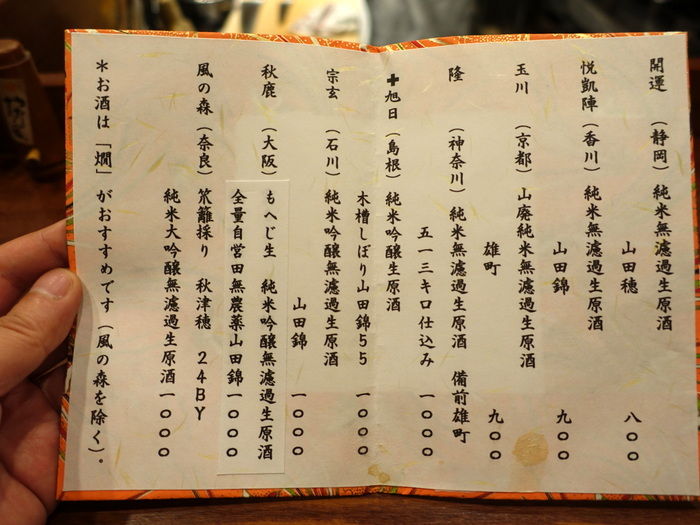 開運 （静岡） 純米無濾過生原酒
山田穂 八〇〇
悦凱陣 （香川） 純米無濾過生原酒
山田錦 九〇〇
玉川 （京都） 山廃純米無濾過生原酒
雄町 九〇〇
隆 （神奈川） 純米無濾過生原酒 備前雄町
五一三キロ仕込み 一〇〇〇
十旭日 （島根） 純米吟醸生原酒
木槽しぼり山田錦５５ 一〇〇〇
宗玄 （石川） 純米吟醸無濾過生原酒
山田錦 一〇〇〇
秋鹿 （大阪） もへじ生 純米吟醸無濾過生原酒
全量自営田無農薬山田錦 一〇〇〇
風の森 （奈良） 笊籬採り 秋津穂 ２４ＢＹ
純米大吟醸無濾過生原酒 一〇〇〇
＊お酒は「燗」がおすすめです（風の森を除く）。